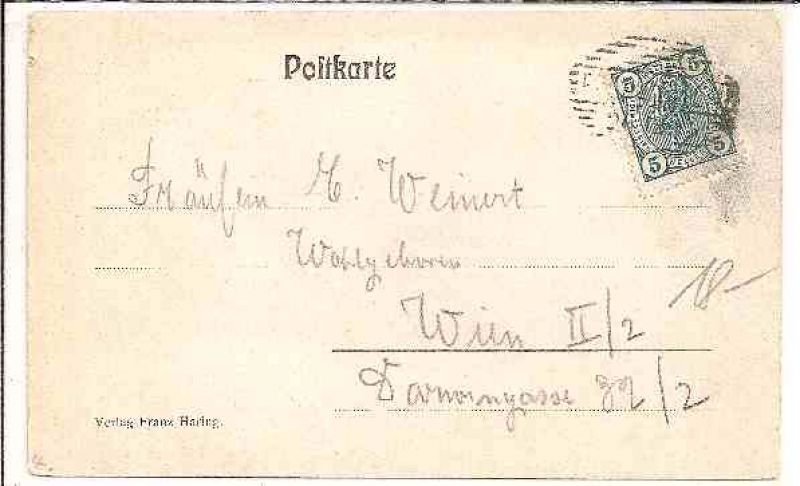 Postkarte
5 5 5 5
Fräulein E. Weinert
Wohlgeboren
Wien II/2
Darwingasse 32/2
Verlag Franz Haring.